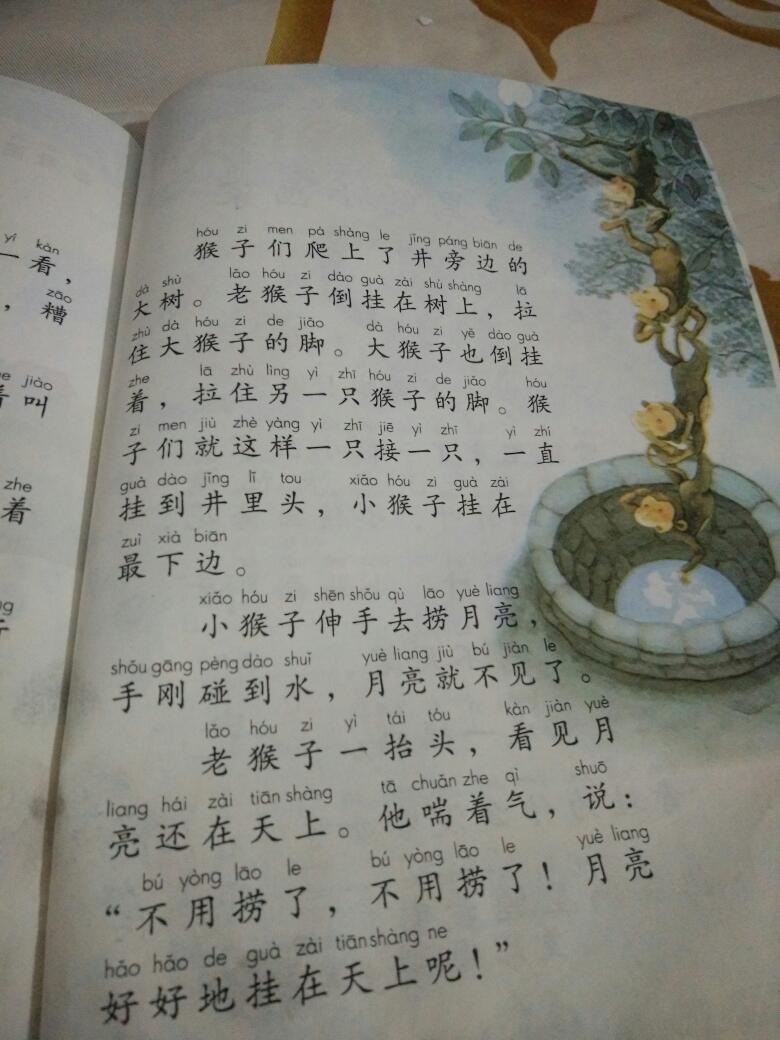 yí kàn
一看，
zāo
，糟
jiào
着叫
zhe
着
hóu zi men pá shàng le jǐng páng biān de
猴子们爬上了井旁边的
dà shù lǎo hóu zi dào guà zài shù shàng lā
大树。老猴子倒挂在树上，拉
zhù dà hóu zi de jiǎo dà hóu zi yě dào guà
住大猴子的脚。大猴子也倒挂
zhe lā zhù lìng yì zhī hóu zi de jiǎo hóu
着，拉住另一只猴子的脚。猴
zi men jiù zhè yàng yì zhī jiē yì zhī yì zhí
子们就这样一只接一只，一直
guà dào jǐng lǐ tou xiǎo hóu zi guà zài
挂到井里头，小猴子挂在
zuì xià biān
最下边。
xiǎo hóu zi shēn shǒu qù lāo yuè liang
小猴子伸手去捞月亮，
shǒu gāng pèng dào shuǐ yuè liang jiù bú jiàn le
手刚碰到水，月亮就不见了。
lǎo hóu zi yì tái tóu kàn jiàn yuè
老猴子一抬头，看见月
liang hái zài tiān shàng tā chuǎn zhe qì shuō
亮还在天上。他喘着气，说：
bú yòng lāo le bú yòng lāo le yuè liang
“不用捞了，不用捞了！月亮
hǎo hǎo de guà zài tiān shàng ne
好好地挂在天上呢！”